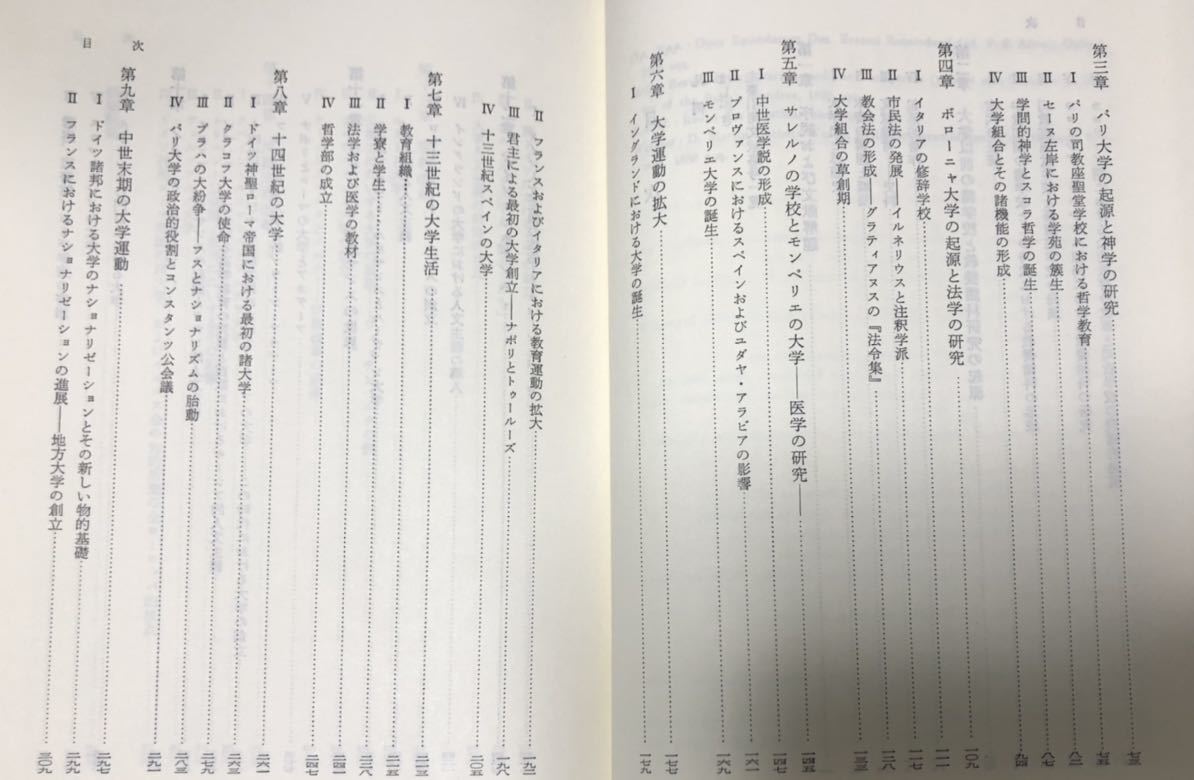 第三章 パリ大学の起源と神学の研究……七三
Ⅰ パリの司教座聖堂学校における哲学教育……七五
Ⅱ セーヌ左岸における学苑の簇生……八二
Ⅲ 学問的神学とスコラ哲学の誕生……八七
Ⅳ 大学組合とその諸機能の形成……九四
第四章 ボローニャ大学の起源と法学の研究……一〇九
Ⅰ イタリアの修辞学校……一一一
Ⅱ 市民法の発展――イルネリウスと注釈学派……一一八
Ⅲ 教会法の形成――グラティアヌスの『法令集』……一二八
Ⅳ 大学組合の草創期……一三三
第五章 サレルノの学校とモンペリエの大学――医学の研究――……一四五
Ⅰ 中世医学説の形成……一五五
Ⅱ プロヴァンスにおけるスペインおよびユダヤ・アラビアの影響……一六一
Ⅲ モンペリエ大学の誕生……一六九
第六章 大学運動の拡大……一七七
Ⅰ イングランドにおける大学の誕生……一七九
Ⅱ フランスおよびイタリアにおける教育運動の拡大……一九二
Ⅲ 君主による最初の大学創立――ナポリとトゥールーズ……一九八
Ⅳ 十三世紀スペインの大学……二〇五
第七章 十三世紀の大学生活……二一三
Ⅰ 教育組織……二一五
Ⅱ 学寮と学生……二二八
Ⅲ 法学および医学の教材……二四一
Ⅳ 哲学部の成立……二四七
第八章 十四世紀の大学……二六一
Ⅰ ドイツ神聖ローマ帝国における最初の諸大学……二六三
Ⅱ クラコフ大学の使命……二七九
Ⅲ プラハの大紛争――フスとナショナリズムの胎動……二八三
Ⅳ パリ大学の政治的役割とコンスタンツ公会議……二九一
目次
第九章 中世末期の大学運動……二九七
Ⅰ ドイツ諸邦における大学のナショナリゼーションとその新しい物的基礎……二九九
Ⅱ フランスにおけるナショナリゼーションの進展――地方大学の創立……三〇九